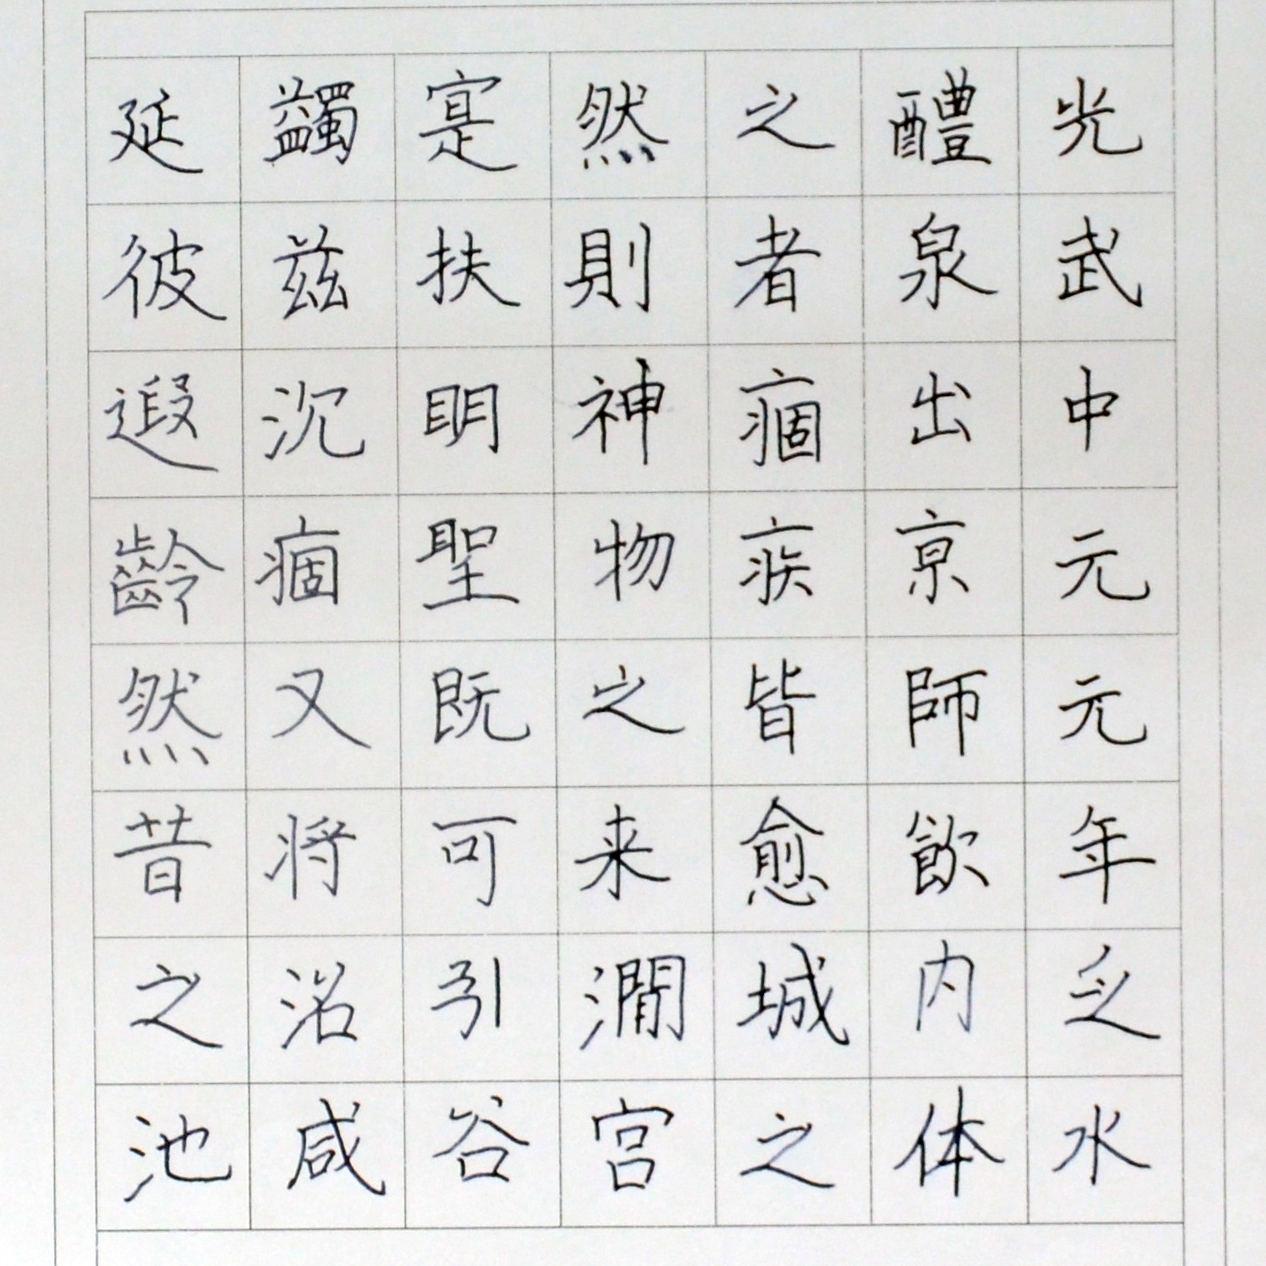 光武中元元年乏水
醴泉出京師飲内体
之者痼疾皆愈城之
然則神物之来澗宫
寔扶明聖既可引谷
蠲兹沉痼又将沿咸
延彼遐齡然昔之池